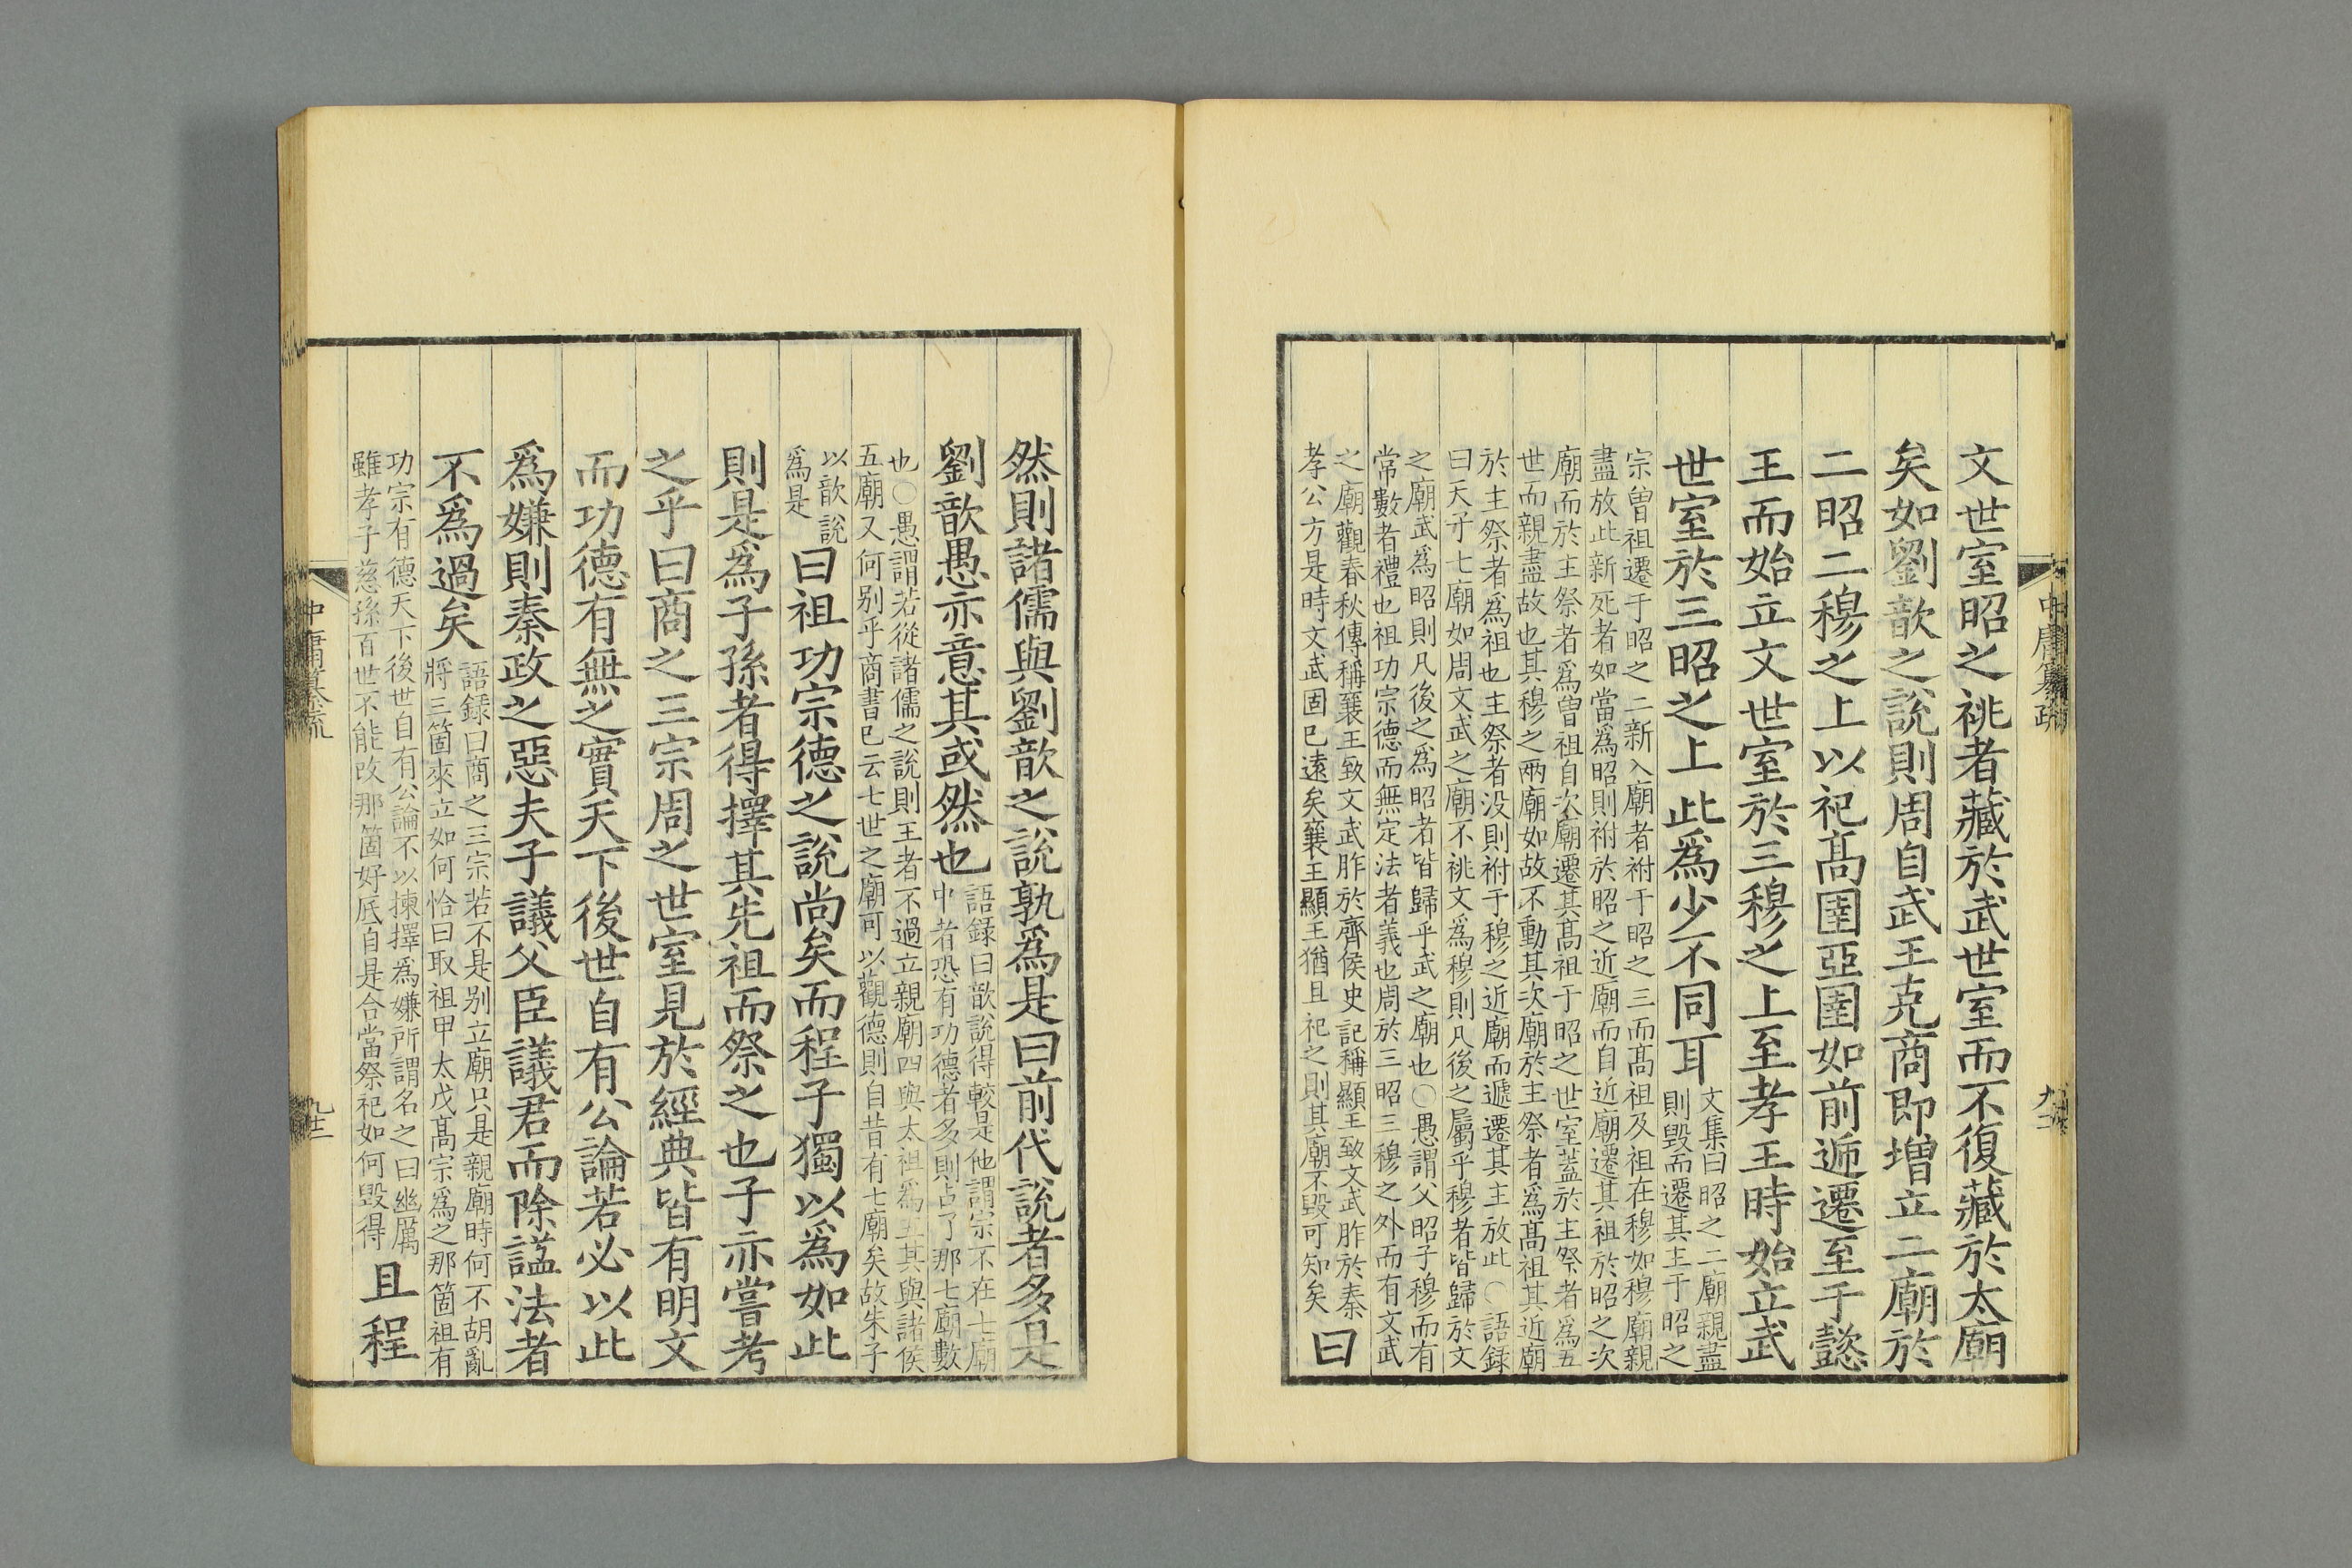 中庸纂疏
文世室昭之祧者藏於武世室而不復藏於太廟
矣如劉歆之說則周自武王克商即增立二廟於
二昭二穆之上以祀髙圉亞圉如前逓遷至于懿
王而始立文世室於三穆之上至孝王時始立武
世室於三昭之上此爲少不同耳
文集曰昭之二廟親盡
則毀而遷其主于昭之
宗曽祖遷于昭之二新入廟者祔于昭之三而髙祖及祖在穆如穆廟親
盡放此新死者如當爲昭則祔於昭之近廟而自近廟遷其祖於昭之次
廟而於主祭者爲曽祖自次廟遷其髙祖于昭之世室蓋於主祭者爲五
世而親盡故也其穆之兩廟如故不動其次廟於主祭者爲髙祖其近廟
於主祭者爲祖也主祭者没則祔于穆之近廟而遞遷其主放此○語録
曰天子七廟如周文武之廟不祧文爲穆則凡後之屬乎穆者皆歸於文
之廟武爲昭則凡後之爲昭者皆歸乎武之廟也○愚謂父昭子穆而有
常數者禮也祖功宗德而無定法者義也周於三昭三穆之外而有文武
之廟觀春秋傳稱襄王致文武胙於齊侯史記稱顯王致文武胙於秦
孝公方是時文武固已遠矣襄王顯王猶且祀之則其廟不毀可知矣
曰
然則諸儒與劉歆之說孰爲是曰前代說者多是
劉歆愚亦意其或然也
語録曰歆說得較是他謂宗不在七廟
中者恐有功德者多則占了那七廟數
也○愚謂若從諸儒之說則王者不過立親廟四與太祖爲五其與諸侯
五廟又何别乎商書已云七世之廟可以觀德則自昔有七廟矣故朱子
以歆說
爲是
曰祖功宗德之說尚矣而程子獨以爲如此
則是爲子孫者得擇其先祖而祭之也子亦嘗考
之乎曰商之三宗周之世室見於經典皆有明文
而功德有無之實天下後世自有公論若必以此
爲嫌則秦政之惡夫子議父臣議君而除謚法者
不爲過矣
語録曰商之三宗若不是别立廟只是親廟時何不胡亂
將三箇來立如何恰曰取祖甲太戊髙宗爲之那箇祖有
功宗有德天下後世自有公論不以揀擇爲嫌所謂名之曰幽厲
雖孝子慈孫百世不能改那箇好底自是合當祭祀如何毀得
且程
中庸纂疏